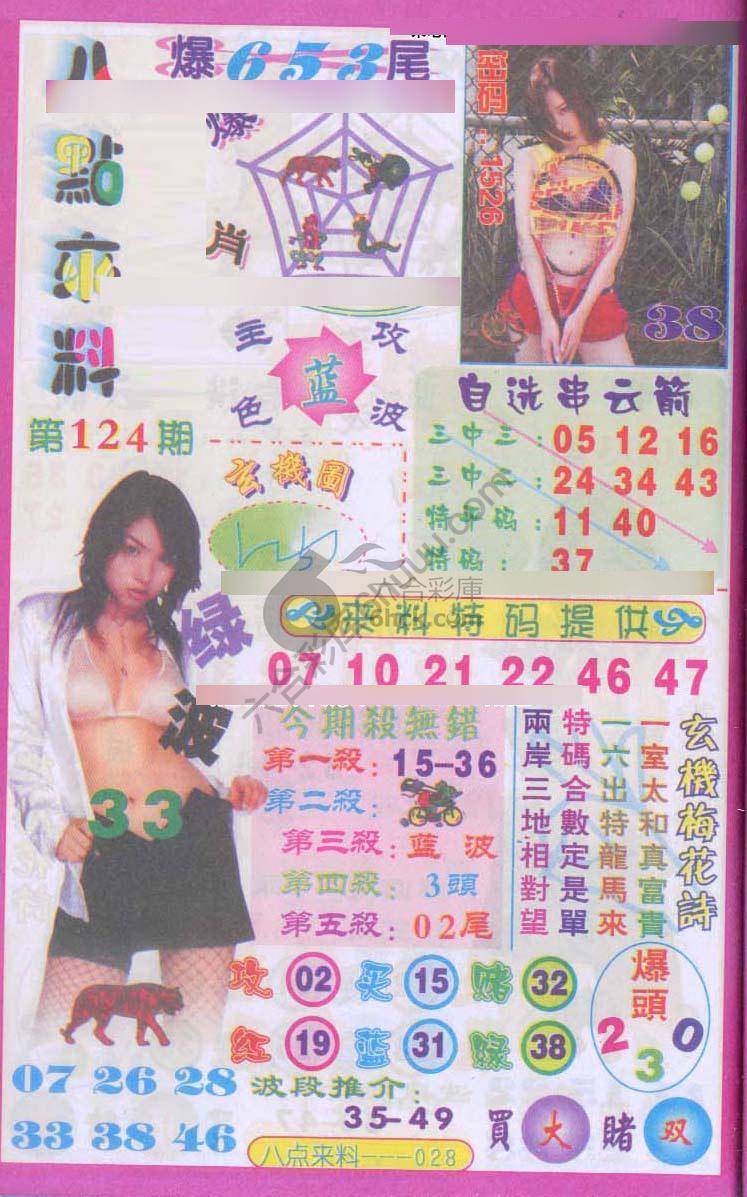 八點來料
爆653尾
爆肖
密码：1526
38
主攻
蓝
色波
第124期
玄機圖
自选串云箭
三中三：05 12 16
三中二：24 34 43
特平码：11 40
特码：37
来料特码提供
07 10 21 22 46 47
绿波
33
今期殺無錯
第一殺：15-36
第二殺：
第三殺：蓝波
第四殺：3頭
第五殺：02尾
玄機梅花詩
一室太和真富貴
一六出特龍馬來
特碼合數定是單
兩岸三地相對望
攻 02 买 15 赌 32
红 19 蓝 31 绿 38
爆頭
2 3 0
07 26 28
33 38 46
波段推介：
35-49
買大賭双
八点来料---028
六合彩庫
76hrk.com